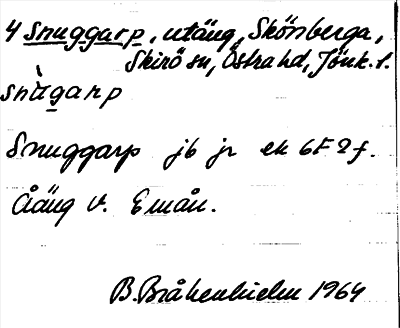 4 Snuggarp, utäng, Skönberga,
Skirö sn, Östra hd, Jönk. l.
snùgarp
Snuggarp jb jr ek 6F 2f.
Åäng v. Emån.
B. Bråkenhielm 1964